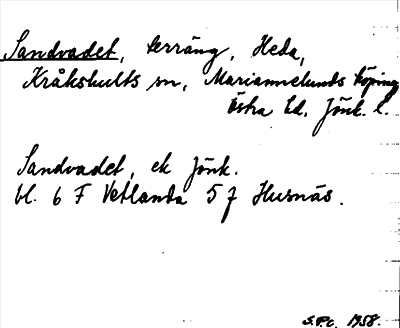 Sandvadet, terräng, Heda,
Kråkshults sn, Mariannelunds köping
Östra hd. Jönk. l.
Sandvadet, ek Jönk.
bl. 6 F Vetlanda 5 f Husnäs.
S.P.c. 1958.